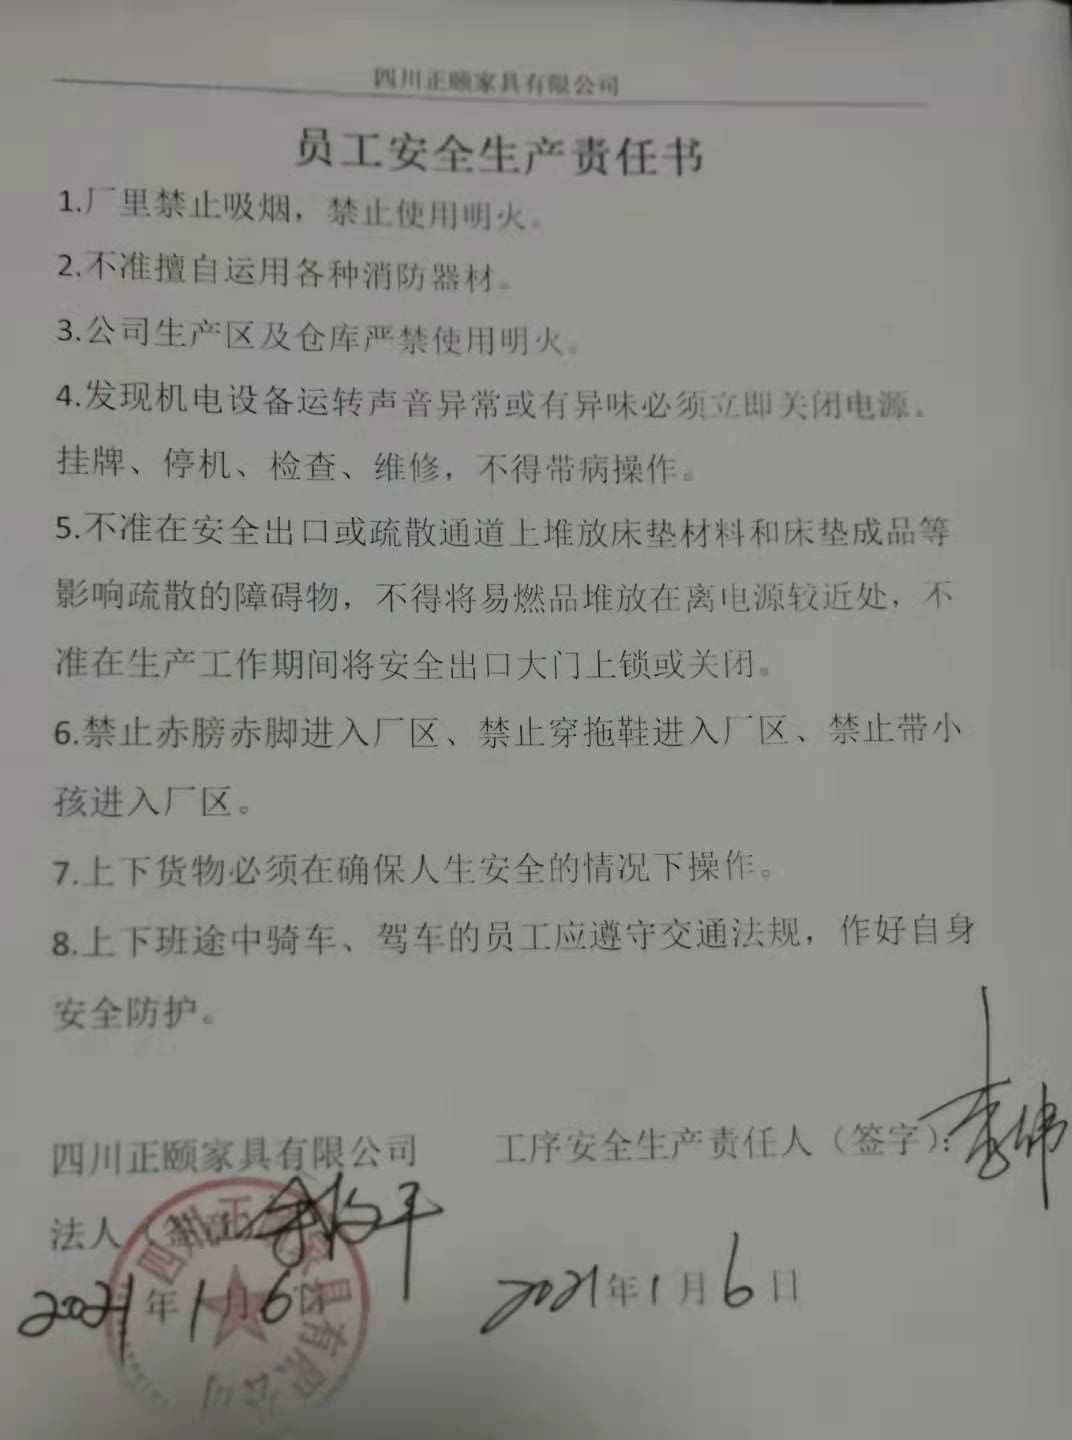 四川正颐家具有限公司
员工安全生产责任书
1.厂里禁止吸烟，禁止使用明火。
2.不准擅自运用各种消防器材。
3.公司生产区及仓库严禁使用明火。
4.发现机电设备运转声音异常或有异味必须立即关闭电源、
挂牌、停机、检查、维修，不得带病操作。
5.不准在安全出口或疏散通道上堆放床垫材料和床垫成品等
影响疏散的障碍物，不得将易燃品堆放在离电源较近处，不
准在生产工作期间将安全出口大门上锁或关闭。
6.禁止赤膀赤脚进入厂区、禁止穿拖鞋进入厂区、禁止带小
孩进入厂区。
7.上下货物必须在确保人生安全的情况下操作。
8.上下班途中骑车、驾车的员工应遵守交通法规，作好自身
安全防护。
四川正颐家具有限公司
工序安全生产责任人（签字）：李伟
法人（签章）
2021年1月6日
2021年1月6日
四川正颐家具有限公司